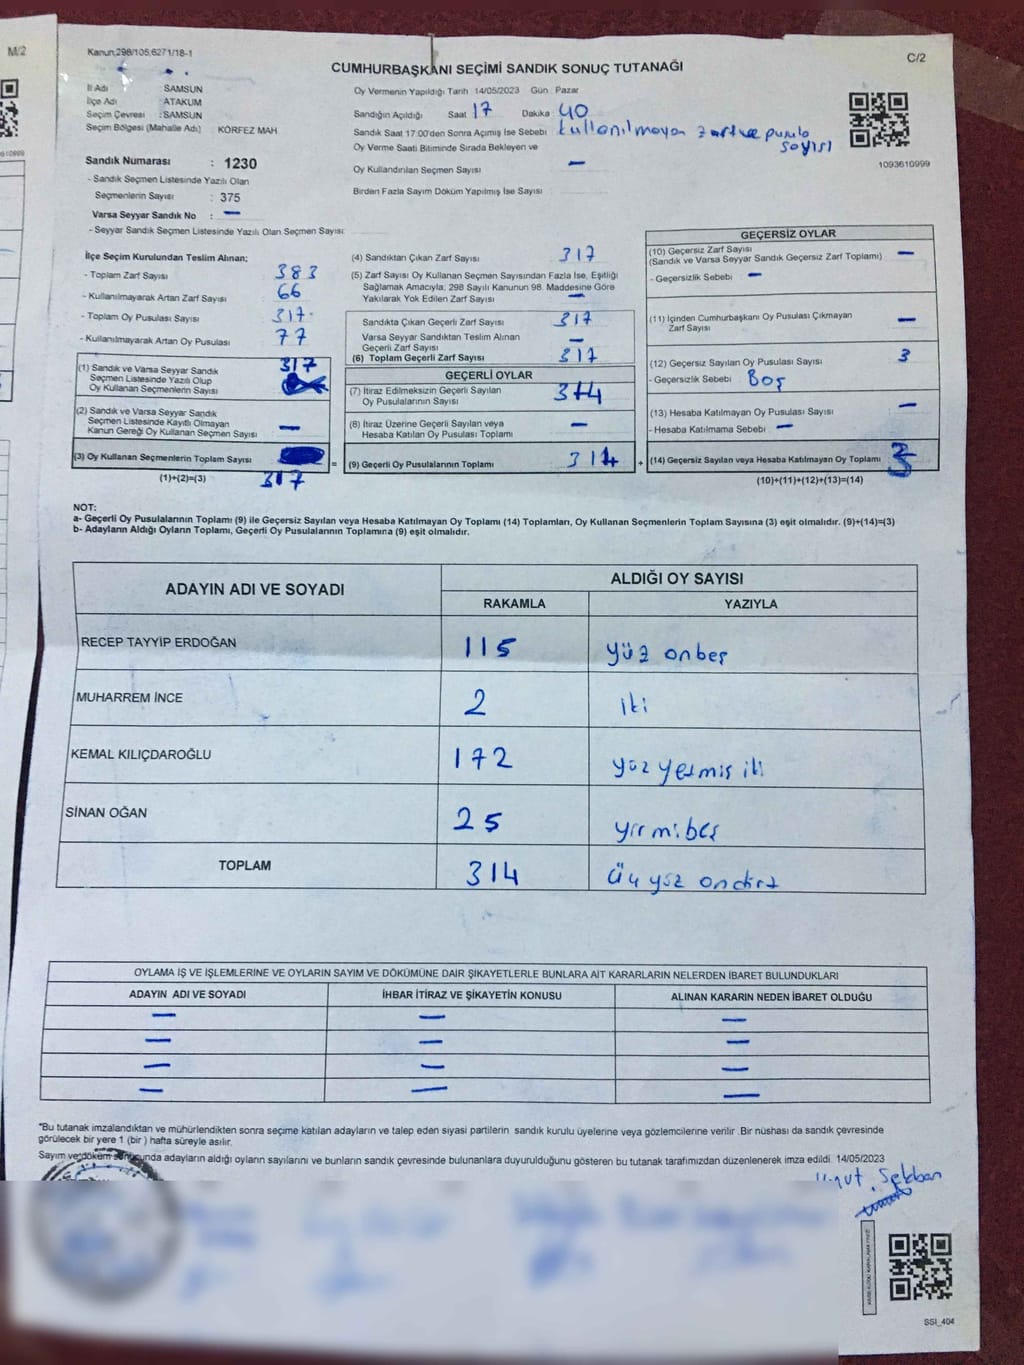 M/2
Kanun:298/105,6271/18-1
C/2
CUMHURBAŞKANI SEÇİMİ SANDIK SONUÇ TUTANAĞI
İl Adı : SAMSUN
İlçe Adı : ATAKUM
Seçim Çevresi : SAMSUN
Seçim Bölgesi (Mahalle Adı) : KÖRFEZ MAH
Oy Vermenin Yapıldığı Tarih 14/05/2023 Gün : Pazar
Sandığın Açıldığı Saat 17 Dakika 40
Sandık Saat 17:00'den Sonra Açımış İse Sebebi kullanılmayan zarf ve pusula sayısı
Oy Verme Saati Bitiminde Sırada Bekleyen ve
Oy Kullandırılan Seçmen Sayısı —
Birden Fazla Sayım Döküm Yapılmış İse Sayısı
1093610999
610999
Sandık Numarası : 1230
- Sandık Seçmen Listesinde Yazılı Olan
Seçmenlerin Sayısı : 375
Varsa Seyyar Sandık No : —
- Seyyar Sandık Seçmen Listesinde Yazılı Olan Seçmen Sayısı:
İlçe Seçim Kurulundan Teslim Alınan;
- Toplam Zarf Sayısı 383
- Kullanılmayarak Artan Zarf Sayısı 66
- Toplam Oy Pusulası Sayısı 317
- Kullanılmayarak Artan Oy Pusulası 77
(1) Sandık ve Varsa Seyyar Sandık
Seçmen Listesinde Yazılı Olup
Oy Kullanan Seçmenlerin Sayısı 317
(2) Sandık ve Varsa Seyyar Sandık
Seçmen Listesinde Kayıtlı Olmayan
Kanun Gereği Oy Kullanan Seçmen Sayısı —
(3) Oy Kullanan Seçmenlerin Toplam Sayısı
(1)+(2)=(3) 317
(4) Sandıktan Çıkan Zarf Sayısı 317
(5) Zarf Sayısı Oy Kullanan Seçmen Sayısından Fazla İse, Eşitliği
Sağlamak Amacıyla; 298 Sayılı Kanunun 98. Maddesine Göre
Yakılarak Yok Edilen Zarf Sayısı —
Sandıkta Çıkan Geçerli Zarf Sayısı 317
Varsa Seyyar Sandıktan Teslim Alınan
Geçerli Zarf Sayısı —
(6) Toplam Geçerli Zarf Sayısı 317
GEÇERLİ OYLAR
(7) İtiraz Edilmeksizin Geçerli Sayılan
Oy Pusulalarının Sayısı 314
(8) İtiraz Üzerine Geçerli Sayılan veya
Hesaba Katılan Oy Pusulası Toplamı —
= (9) Geçerli Oy Pusulalarının Toplamı 314
GEÇERSİZ OYLAR
(10) Geçersiz Zarf Sayısı —
(Sandık ve Varsa Seyyar Sandık Geçersiz Zarf Toplamı)
- Geçersizlik Sebebi —
(11) İçinden Cumhurbaşkanı Oy Pusulası Çıkmayan
Zarf Sayısı —
(12) Geçersiz Sayılan Oy Pusulası Sayısı 3
- Geçersizlik Sebebi Boş
(13) Hesaba Katılmayan Oy Pusulası Sayısı —
- Hesaba Katılmama Sebebi —
+ (14) Geçersiz Sayılan veya Hesaba Katılmayan Oy Toplamı 3
(10)+(11)+(12)+(13)=(14)
NOT:
a- Geçerli Oy Pusulalarının Toplamı (9) ile Geçersiz Sayılan veya Hesaba Katılmayan Oy Toplamı (14) Toplamları, Oy Kullanan Seçmenlerin Toplam Sayısına (3) eşit olmalıdır. (9)+(14)=(3)
b- Adayların Aldığı Oyların Toplamı, Geçerli Oy Pusulalarının Toplamına (9) eşit olmalıdır.
ADAYIN ADI VE SOYADI ALDIĞI OY SAYISI
RAKAMLA YAZIYLA
RECEP TAYYİP ERDOĞAN 115 yüz onbeş
MUHARREM İNCE 2 iki
KEMAL KILIÇDAROĞLU 172 yüz yetmiş iki
SİNAN OĞAN 25 yirmibeş
TOPLAM 314 üç yüz ondört
OYLAMA İŞ VE İŞLEMLERİNE VE OYLARIN SAYIM VE DÖKÜMÜNE DAİR ŞİKAYETLERLE BUNLARA AİT KARARLARIN NELERDEN İBARET BULUNDUKLARI
ADAYIN ADI VE SOYADI İHBAR İTİRAZ VE ŞİKAYETİN KONUSU ALINAN KARARIN NEDEN İBARET OLDUĞU
— — —
— — —
— — —
— — —
"Bu tutanak imzalandıktan ve mühürlendikten sonra seçime katılan adayların ve talep eden siyasi partilerin sandık kurulu üyelerine veya gözlemcilerine verilir .Bir nüshası da sandık çevresinde
görülecek bir yere 1 (bir ) hafta süreyle asılır.
Sayım ve döküm sonucunda adayların aldığı oyların sayılarını ve bunların sandık çevresinde bulunanlara duyurulduğunu gösteren bu tutanak tarafımızdan düzenlenerek imza edildi. 14/05/2023
SSİ_404